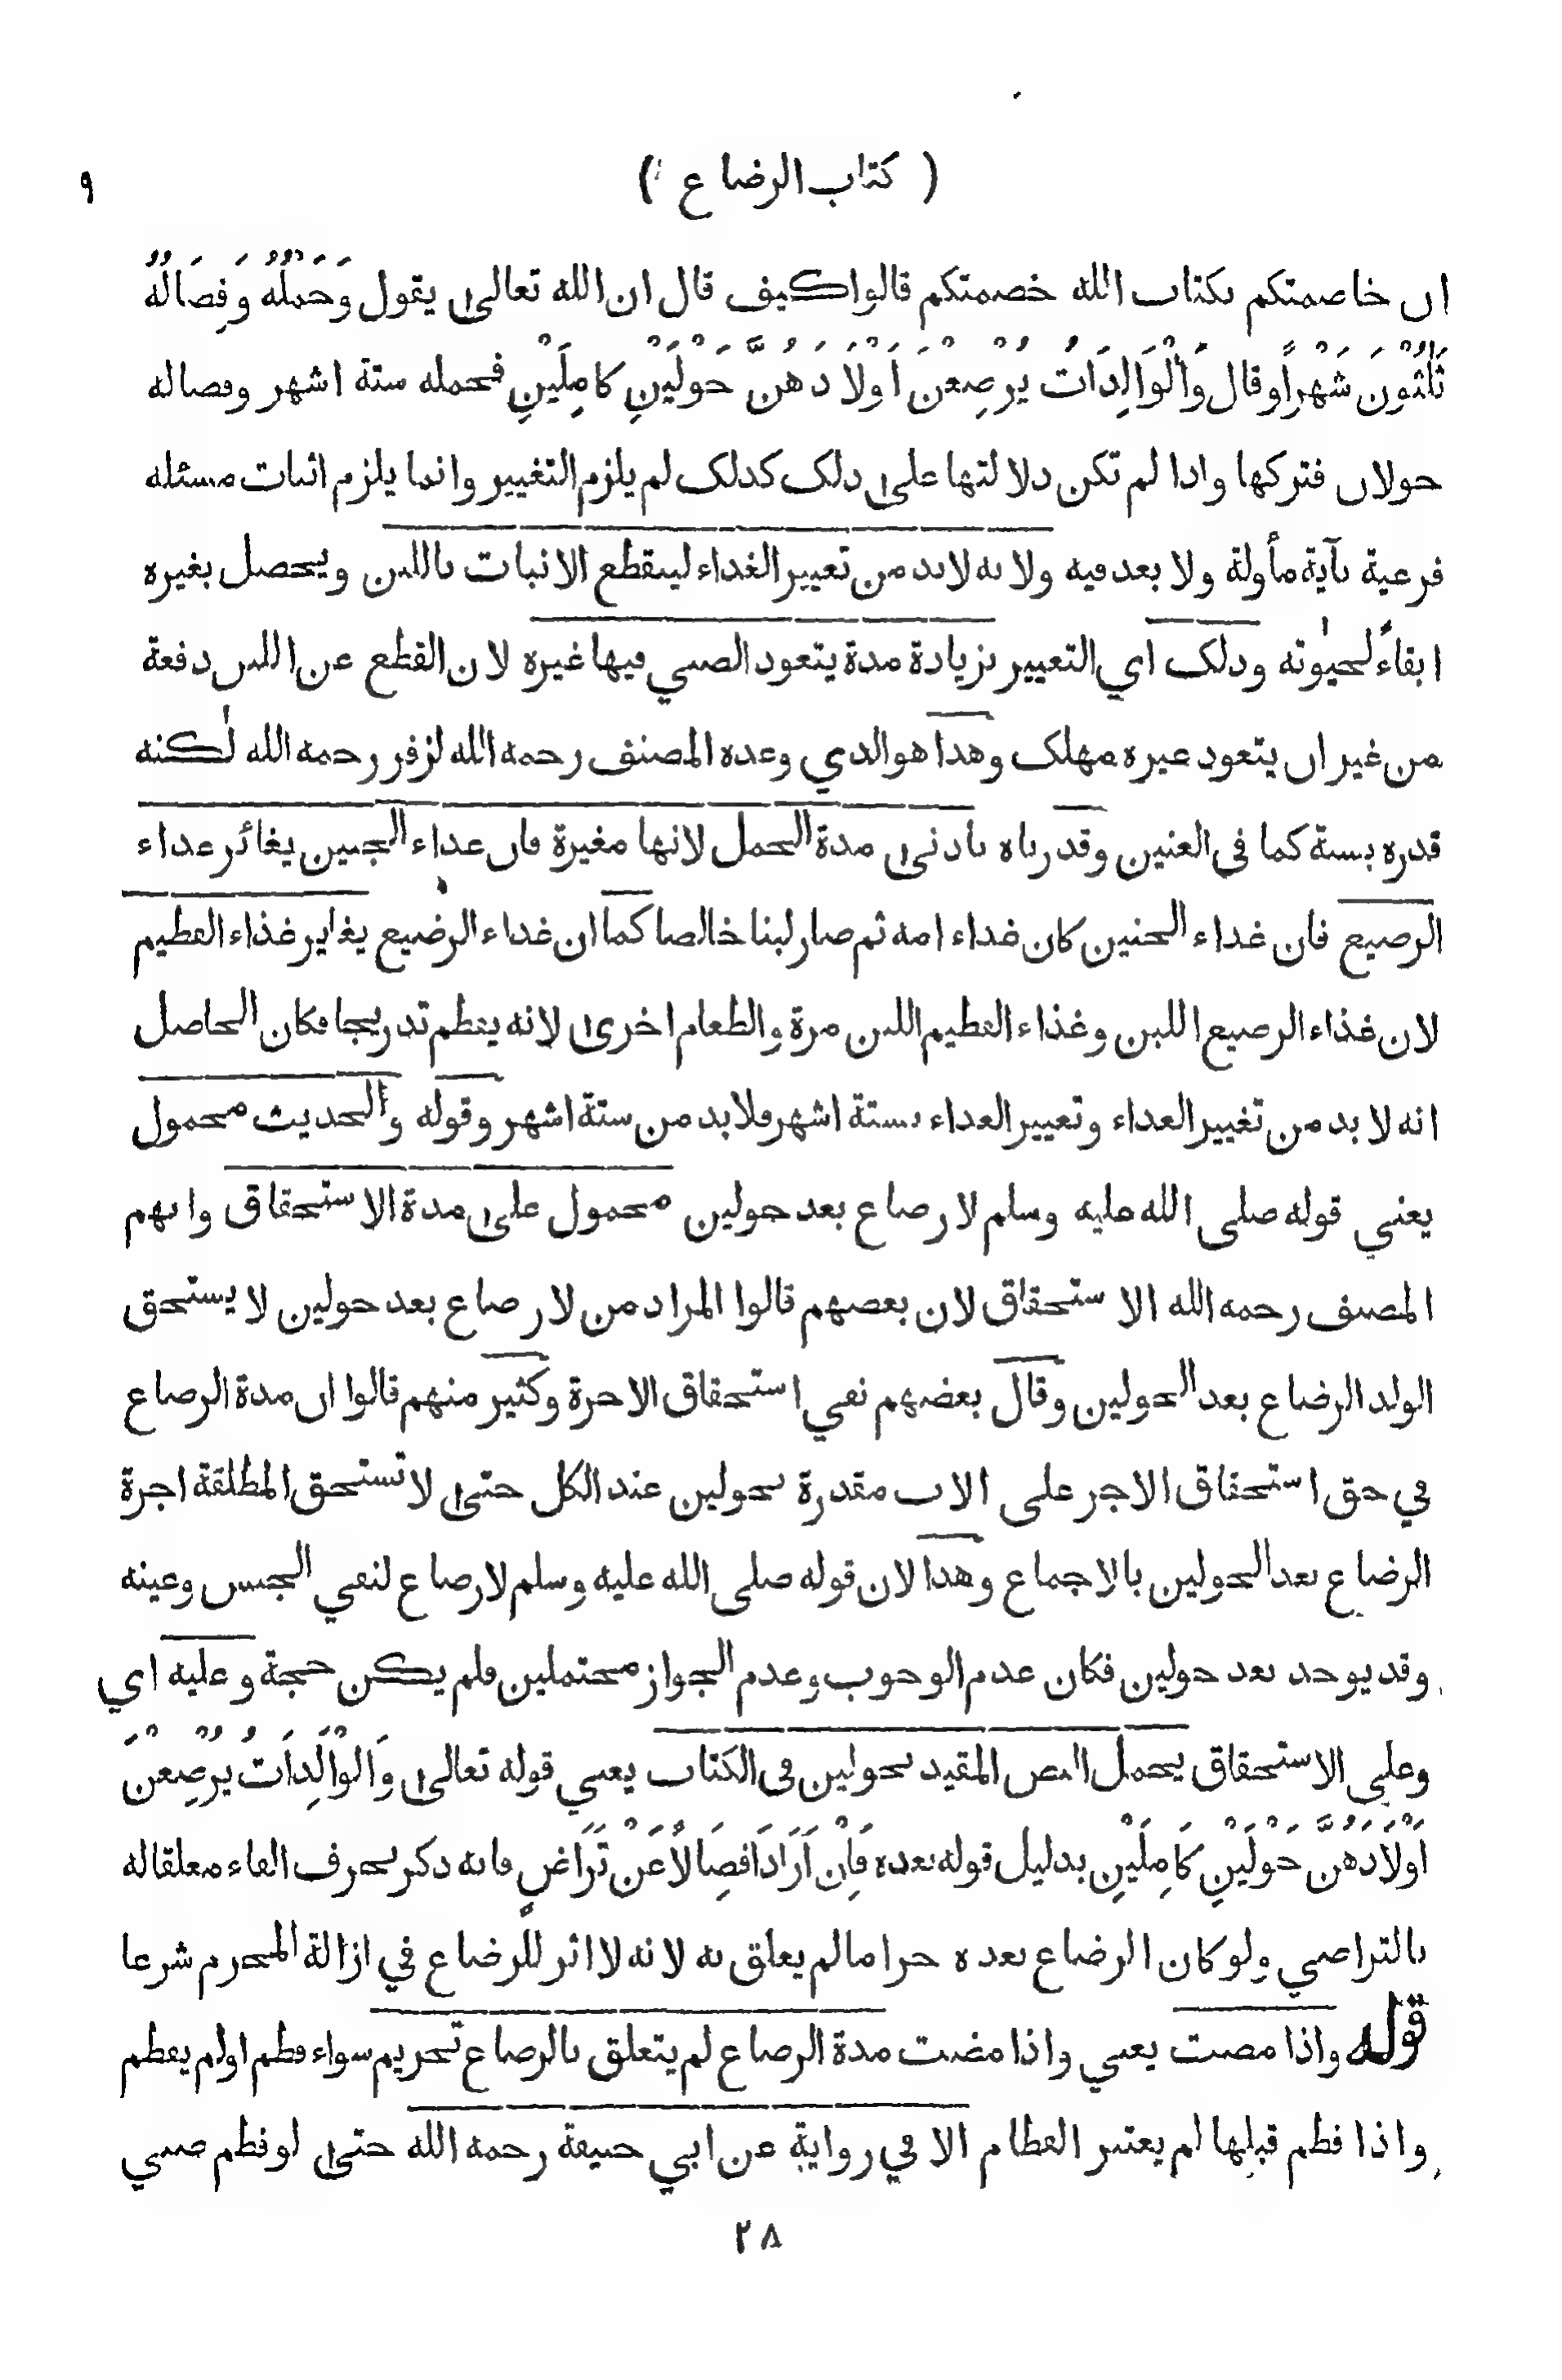 ( كتاب الرضاع )
٩
ان خاصمتكم بكتاب الله خصمتكم قالوا كيف قال ان الله تعالى يقول وَحَمْلُهُ وَفِصَالُهُ
ثَلٰثُوْنَ شَهْراً وقال وَالْوَالِدَاتُ يُرْضِعْنَ اَوْلَادَهُنَّ حَوْلَيْنِ كَامِلَيْنِ فحمله ستة اشهر وفصاله
حولان فتركها واذا لم تكن دلالتها على ذلك كذلك لم يلزم التغيير وانما يلزم اثبات مسئله
فرعية بآية مأولة ولا بعد فيه ولانه لابد من تغيير الغذاء لينقطع الانبات باللبن ويحصل بغيره
ابقاءً لحيٰوته وذلك اي التغيير بزيادة مدة يتعود الصبي فيها غيره لان القطع عن اللبن دفعة
من غير ان يتعود غيره مهلك وهذا هو الذي وعده المصنف رحمه الله لزفر رحمه الله لٰكنه
قدره بسنة كما فى العنين وقدرناه بادنى مدة الحمل لانها مغيرة فان غذاء الجنين يغائر غذاء
الرضيع فان غذاء الجنين كان غذاء امه ثم صار لبنا خالصا كما ان غذاء الرضيع يغاير غذاء الفطيم
لان غذاء الرضيع اللبن وغذاء الفطيم اللبن مرة والطعام اخرى لانه يفطم تدريجا فكان الحاصل
انه لا بد من تغيير الغذاء وتغيير الغذاء بستة اشهر فلا بد من ستة اشهر وقوله والحديث محمول
يعني قوله صلى الله عليه وسلم لا رضاع بعد حولين محمول على مدة الاستحقاق وابهم
المصنف رحمه الله الاستحقاق لان بعضهم قالوا المراد من لا رضاع بعد حولين لا يستحق
الولد الرضاع بعد الحولين وقال بعضهم نفي استحقاق الاجرة وكثير منهم قالوا ان مدة الرضاع
في حق استحقاق الاجر على الاب مقدرة بحولين عند الكل حتى لا تستحق المطلقة اجرة
الرضاع بعد الحولين بالاجماع وهذا لان قوله صلى الله عليه وسلم لا رضاع لنفي الجنس وعينه
وقد يوجد بعد حولين فكان عدم الوجوب وعدم الجواز محتملين فلم يكن حجة وعليه اي
وعلى الاستحقاق يحمل النص المقيد بحولين فى الكتاب يعني قوله تعالى وَالْوَالِدَاتُ يُرْضِعْنَ
اَوْلَادَهُنَّ حَوْلَيْنِ كَامِلَيْنِ بدليل قوله بعده فَاِنْ اَرَادَا فِصَالاً عَنْ تَرَاضٍ فانه ذكر بحرف الفاء معلقا له
بالتراضي ولو كان الرضاع بعده حراما لم يعلق به لانه لا اثر للرضاع في ازالة المحرم شرعا
قوله واذا مضت يعني واذا مضت مدة الرضاع لم يتعلق بالرضاع تحريم سواء فطم او لم يفطم
واذا فطم قبلها لم يعتبر الفطام الا في رواية عن ابي حنيفة رحمه الله حتى لو فطم صبي
٢٨